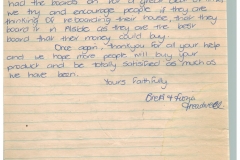 had the boards on for a great deal of time,
we try and encourage people if they are
thinking of reboarding their house, that they
board it in as they are the best
board that their money could buy.
Once again, thankyou for all your help
and we hope more people will buy your
product and be totally satisfied as much as
we have been.
Yours Faithfully